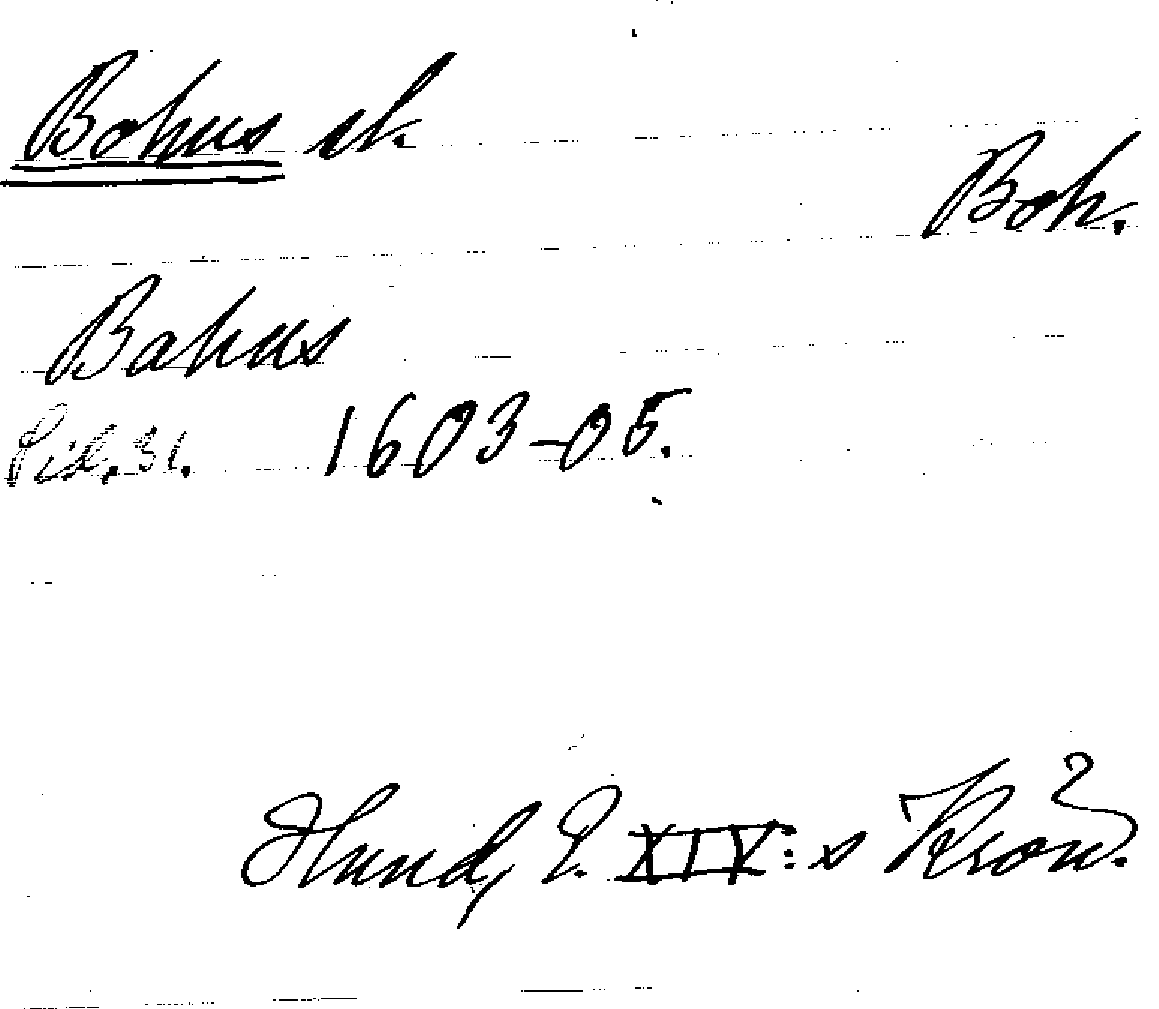 Bohus sk.
Boh.
Bahus
Sid. 31. 1603-05.
Hund, E. XIV:s Krön.